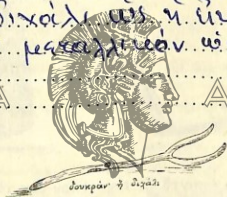 διχάλι ὡς ἡ εἰ
μεταλλικόν ὡ
δουκράν ἤ διχάλι